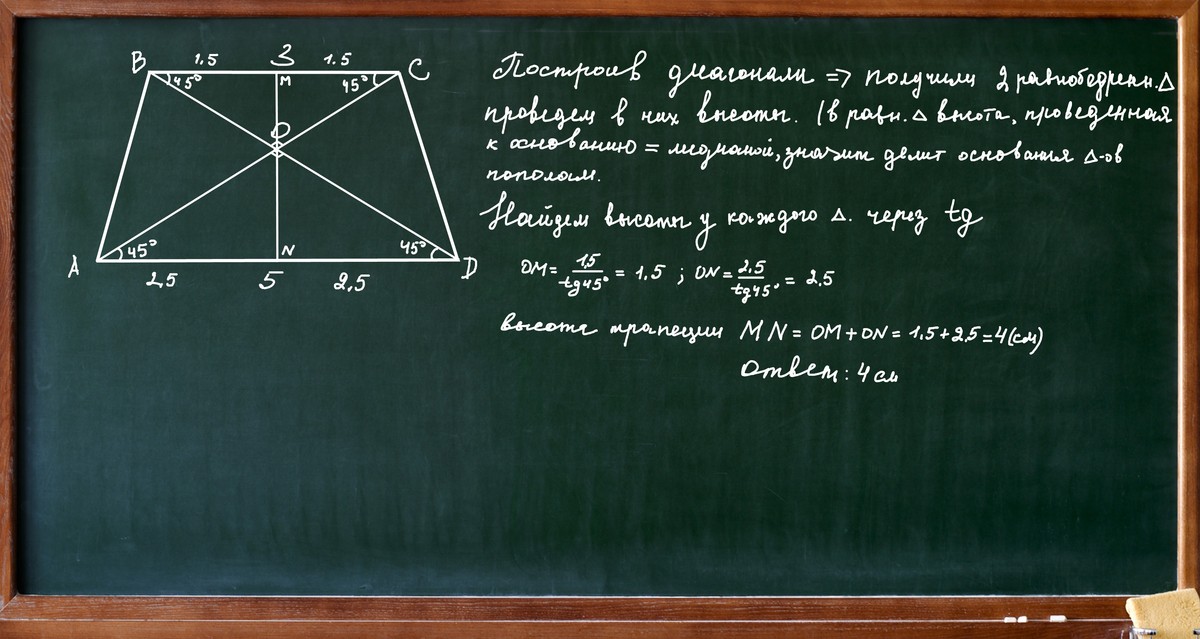 B 1.5 3 1.5 C
45° M 45°
O
45° N 45°
A 2,5 5 2,5 D
Построив диагонали => получили 2 равнобедренн. Δ
проведем в них высоты. (в равн. Δ высота, проведенная
к основанию = медианой, значит делит основания Δ-ов
пополам.
Найдем высоты у каждого Δ. через tg
OM = 1,5/tg45° = 1,5 ; ON = 2,5/tg45° = 2,5
высота трапеции MN = OM + ON = 1,5 + 2,5 = 4(см)
Ответ: 4 см